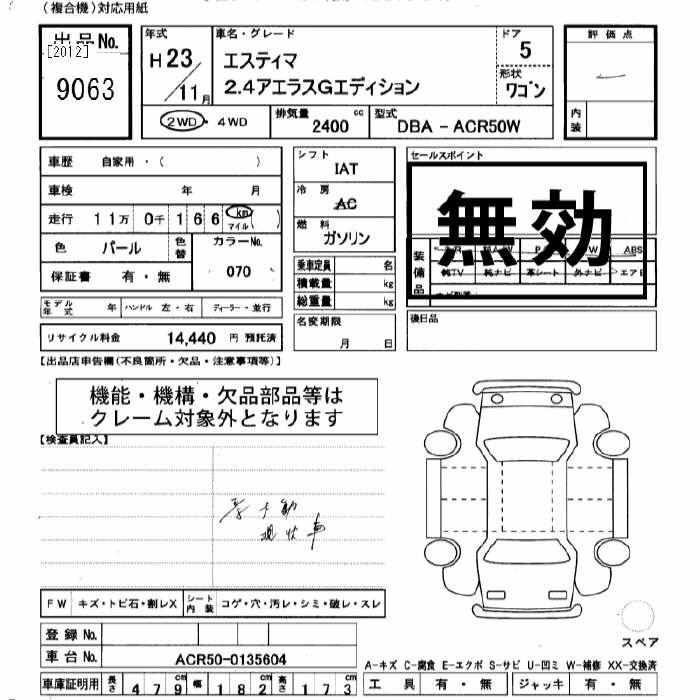 (複合機)対応用紙
出品No.
[2012]
9063
年式
H23/11月
車名・グレード
エスティマ
2.4アエラスGエディション
ドア
5
形状
ワゴン
評価点
内装
2WD・4WD
排気量
2400 cc
型式
DBA - ACR50W
車歴 自家用・( )
車検 年 月
走行 11万 0千 166 km マイル ( )
色 パール
色替
カラーNo.
070
保証書 有・無
シフト
IAT
冷房
AC
燃料
ガソリン
乗車定員 名
積載量 kg
総重量 kg
セールスポイント
無効
装備品
ABS
純TV 純ナビ 革シート 外ナビ エアB
モデル年式 年 ハンドル 左・右 ディーラー・並行
リサイクル料金 14,440 円 預託済
名変期限
月 日
後日品
【出品店申告欄(不良箇所・欠品・注意事項等)】
機能・機構・欠品部品等は
クレーム対象外となります
【検査員記入】
現状車
FW キズ・トビ石・割レX
シート内装 コゲ・穴・汚レ・シミ・破レ・スレ
登録No.
車台No. ACR50-0135604
スペア
A-キズ C-腐食 E-エクボ S-サビ U-凹ミ W-補修 XX-交換済
車庫証明用 長さ 479cm 幅 182cm 高さ 173cm
工具 有・無 ジャッキ 有・無